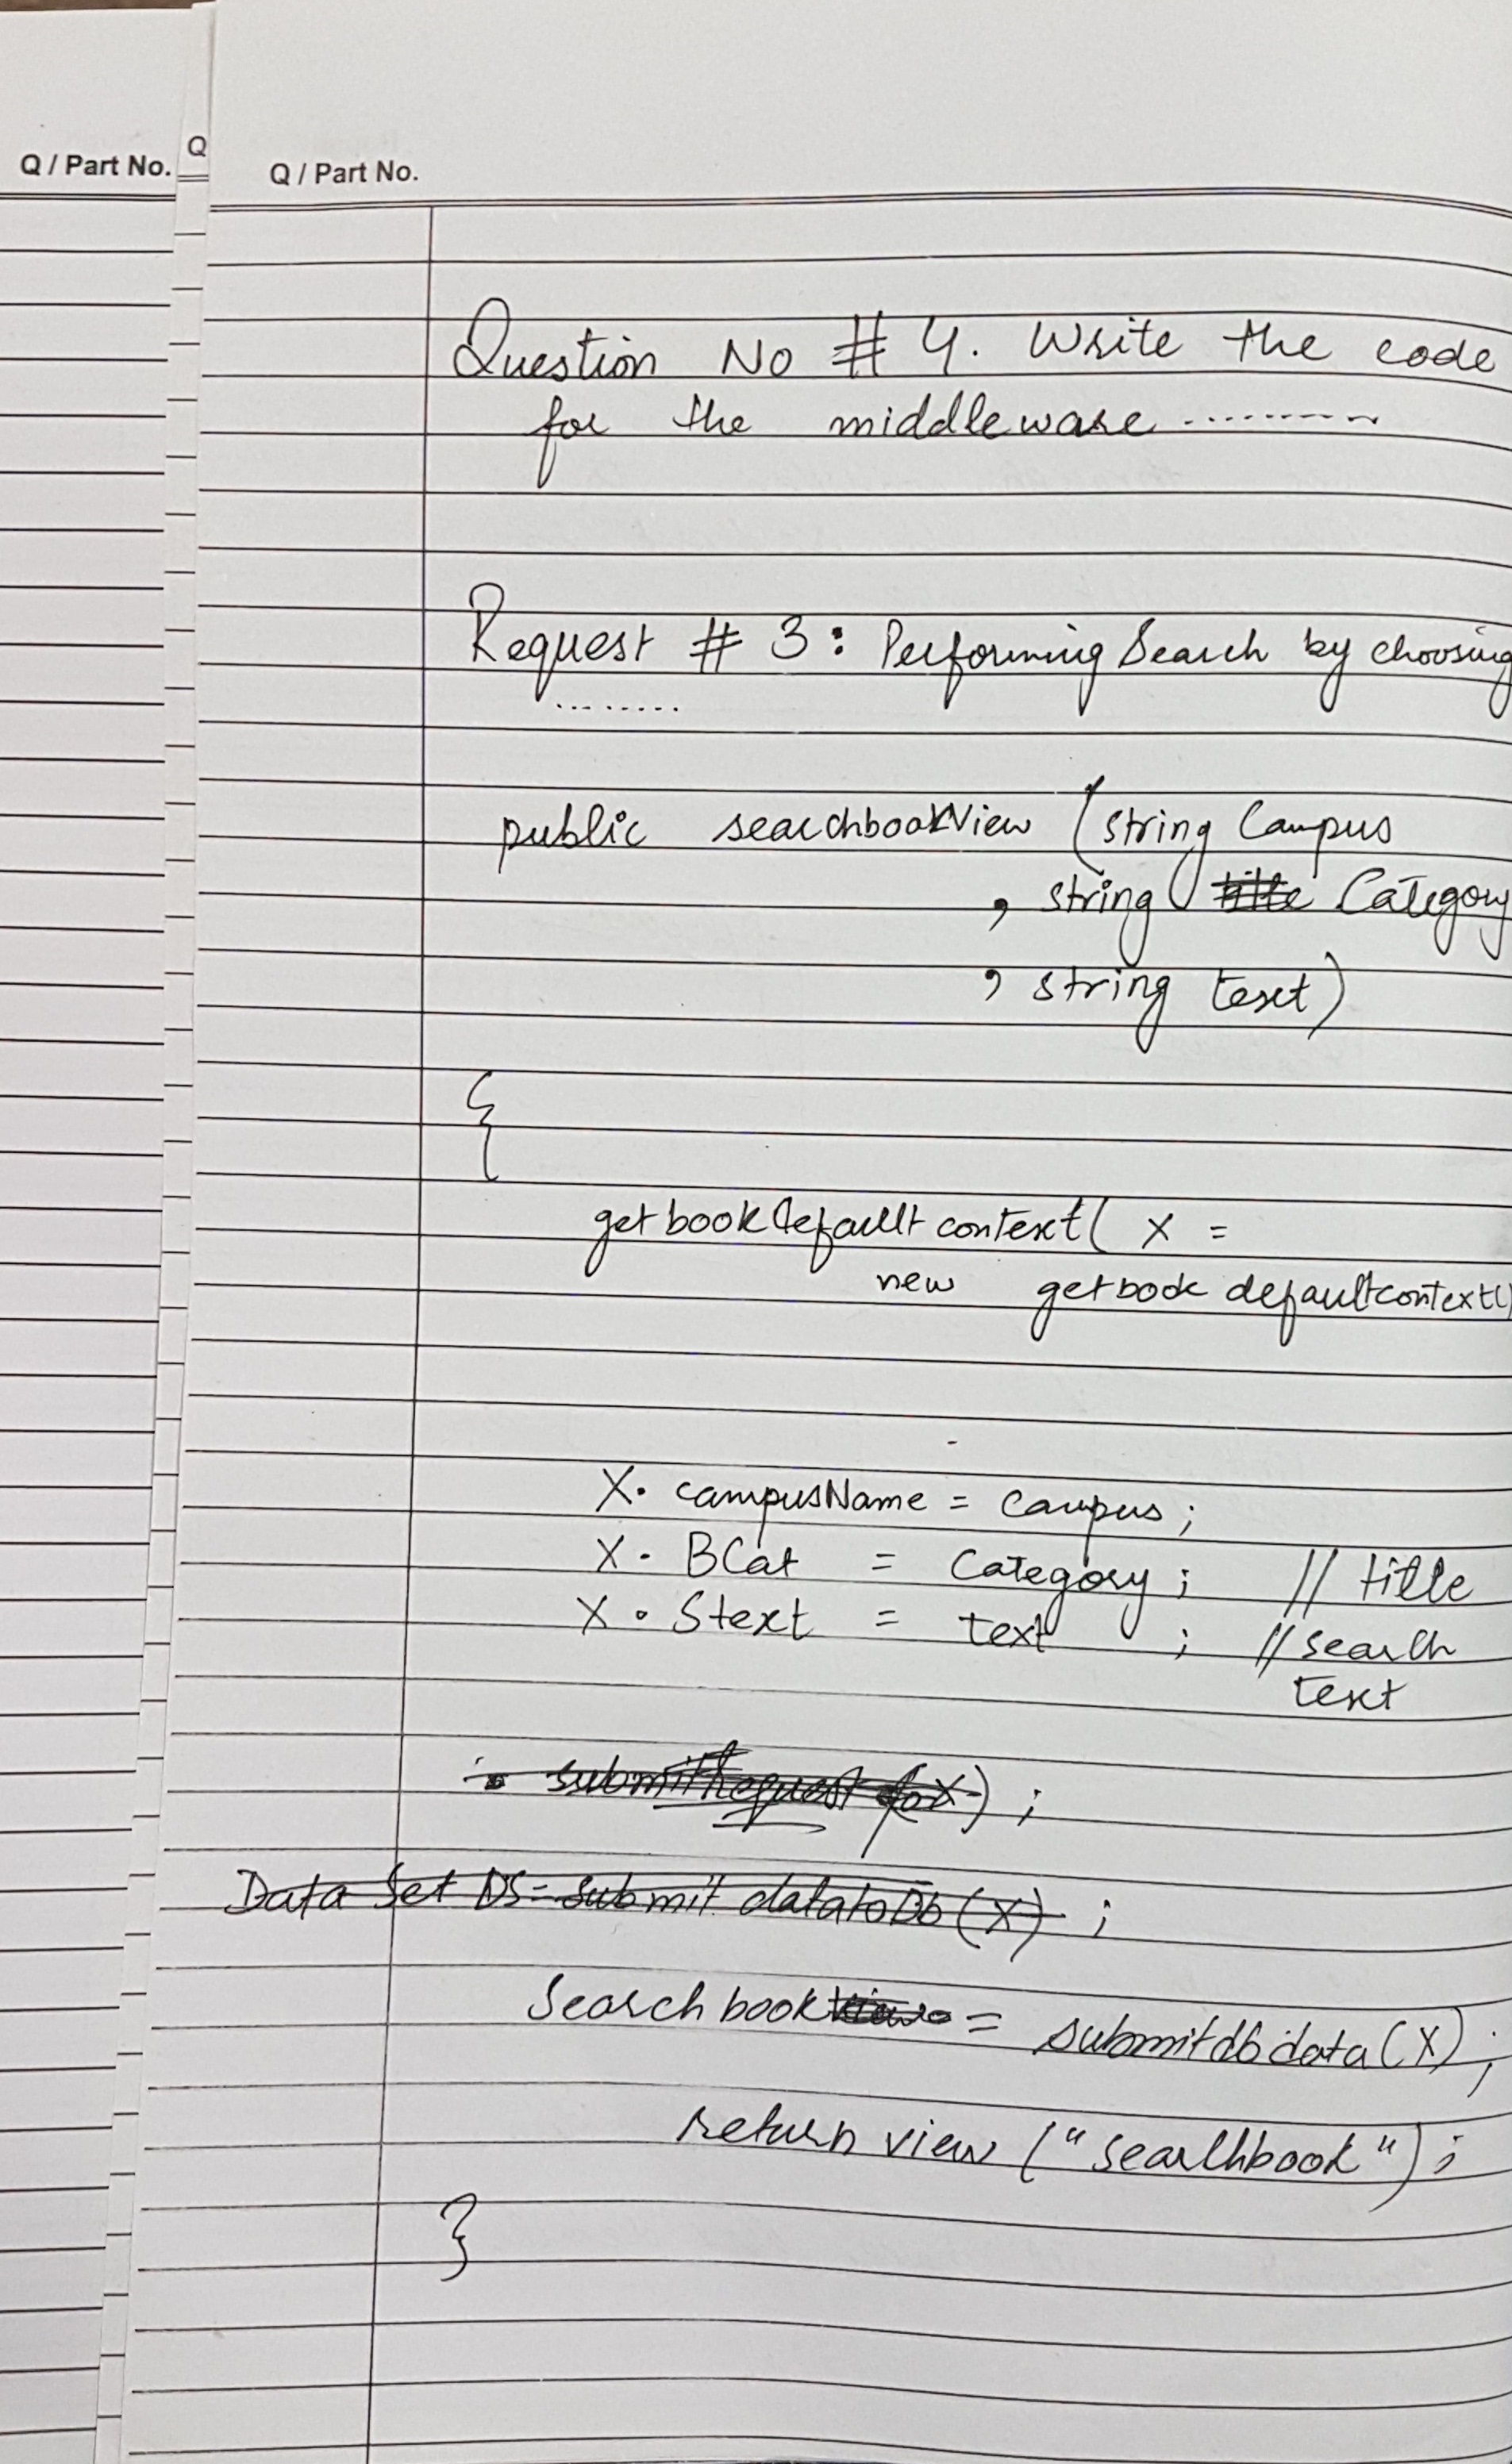 Q / Part No.
Q
Q / Part No.
Question No # 4. Write the code
for the middleware ..........
Request # 3: Performing Search by choosing
........
public searchbookView (string Campus
, string title Category
, string text)
{
getbookdefault context( x =
new getbook defaultcontext()
X. campusName = Campus;
X. BCat = Category; // title
X. Stext = text ; // search
text
submitRequest (X);
Data Set DS = submit datatoDb(X);
Searchbook = submitdbdata(X);
return view ("searchbook");
}